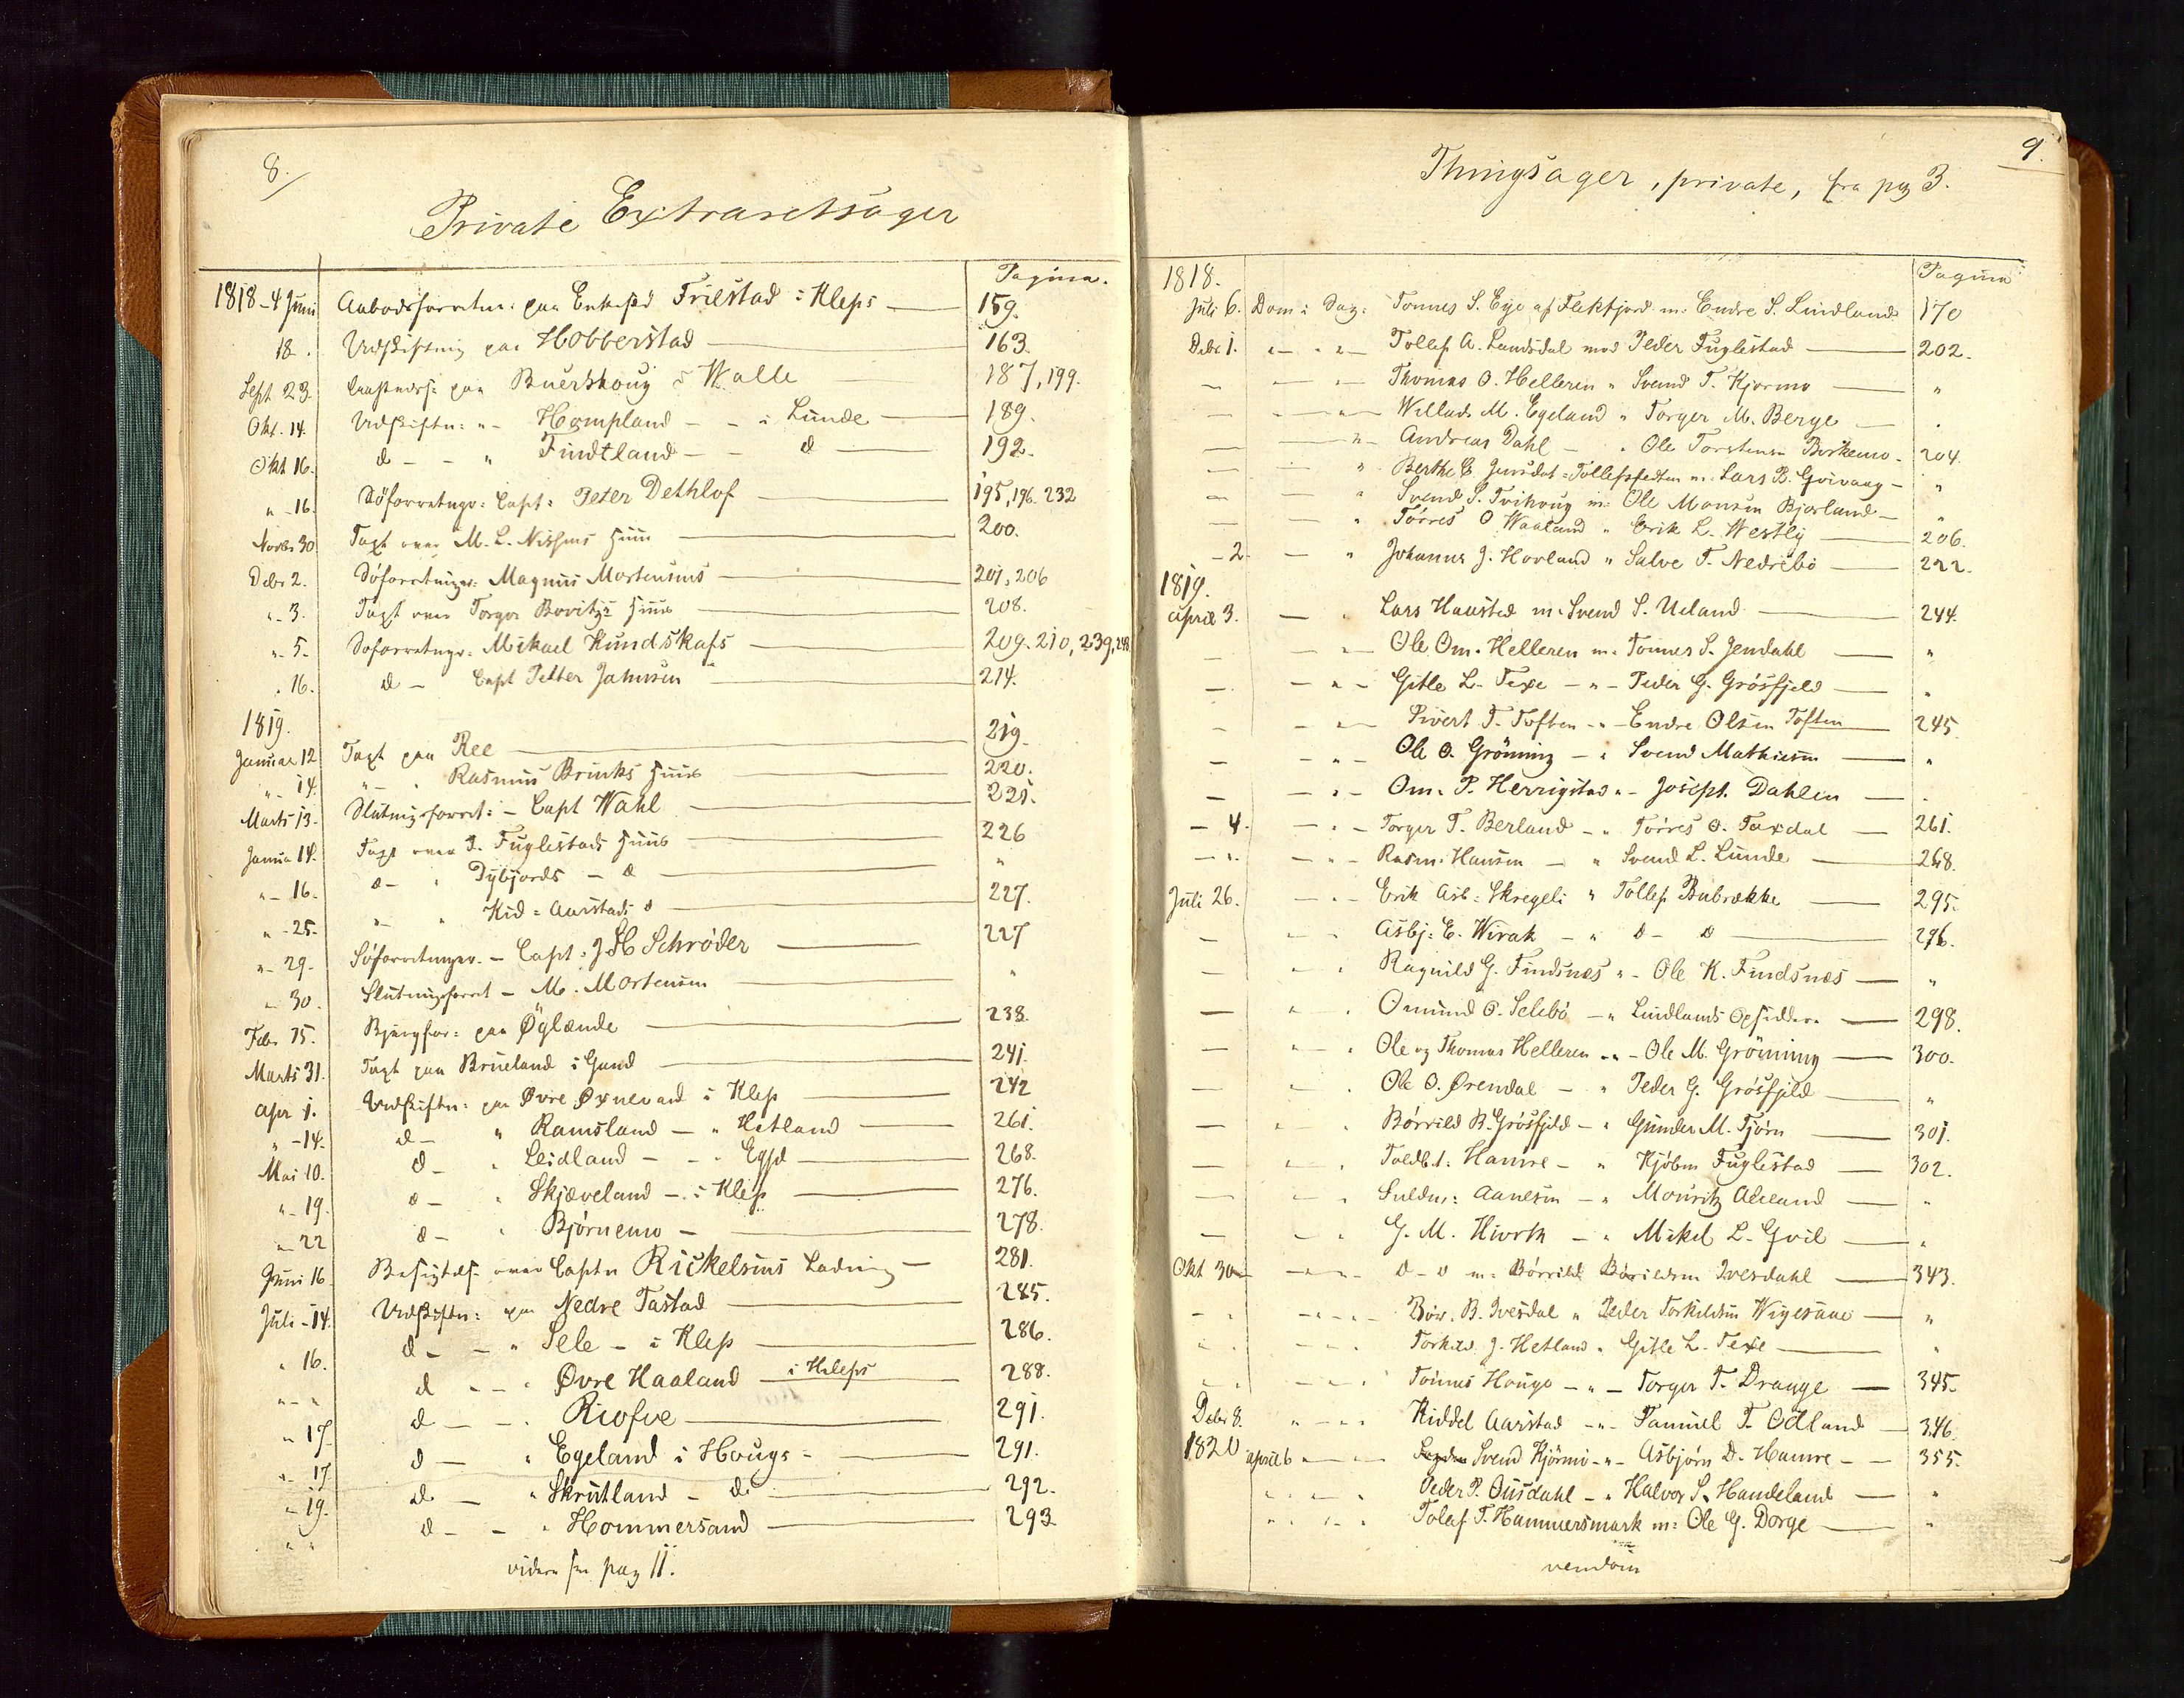 8.
Private Extraretssager
Pagina.
1818 - 4 Juni Aabodsforretn: paa Enkesæd Friestad i Kleps — 159.
18. Udskiftning paa Hobberstad — 163.
Sept 23 paa Buershoug i Walle 187, 199.
Okt. 14. Udskiftn: " - Hompland - - i Lunde — 189.
Okt 16. d - - " Findtland - - d — 192.
" - 16. Söforretngr: Capt: Peter Dethlof — 195, 196. 232
Novbr 30 Taxt over M. L. Nilsens Huus — 200.
Debr 2. Söforretninger: Magnus Mortensens — 201, 206
" - 3. Taxt over Torger Bovitz's Huus — 208.
" - 5. Soforretngr: Mikael Kundskafs — 209. 210, 239, 248
" 16. d - Capt Petter Jahnsen — 214.
1819.
Januar 12 Taxt paa Ree — 219.
" - 14. " - " Rasmus Brinks Huus — 220.
Marts 13. Slutningsforret: - Capt Wahl — 221.
Janua 14. Taxt over P. Fuglestads Huus — 226
" - 16. d - " Dybjords - d — "
" - 25. " - " Kid = Aarstads d — 227.
" - 29. Söforretninger. - Capt: J H Schrøder — 227
" - 30. Slutningsforret - M. Mortensen — "
Febr 15. paa Öglænde — 238.
Marts 31. Taxt paa Brueland i Gand — 241.
Apr 1. Udskiftn: paa Øvre Øxnevad i Klep — 242
" - 14. d - " Ramsland - " Hetland — 261.
Mai 10. d - " Leidland - - " Egsd — 268.
" - 19. d - " Skjæveland - i Klep — 276.
" - 22 d - " Bjørnemo - — 278.
Juni 16 Besigtels over Captn Rickelsens Ladning — 281.
Juli - 14. Udskiftn: paa Nedre Tastad — 285.
" 16. d - - " Sele - i Klep — 286.
" - " d - - " Øvre Haaland — i Kleps 288.
" 17. d - - " Riofve — 291.
" 17 d - " Egeland i Hougs - — 291.
" 19. d - " Skrutland - d. — 292.
" " d - - " Hommersand — 293
videre see pag 11.
9.
Thingsager, private, fra pag 3.
1818. Pagina
Juli 6. Dom i Sag: Tonnes S. Eye af Flekkfjord m: Endre S. Lindland 170
Debr 1. " - " - Tollef A. Landsdal mod Peder Fuglestad — 202.
- - " - Thomas O. Helleren " Svend T. Kjormo — "
- - " - Willads M. Egeland " Torger M. Berge — "
- - " - Andreas Dahl - " Ole Torstensen Birkemo - 204.
- - " Berthe E Jensdat = Tollefsfedten m: Lars B. Gvivaag - "
- - " Svend S. Tvihoug m: Ole Monsen Bjorland - "
- - " Törres O Waaland " Erik L. Westly - 206.
- 2 - " Johannes J. Hovland " Salve T. Nedrebö — 222.
1819.
April 3. - " Lars Haastad m: Svend S. Ueland — 244.
- - " - Ole Om. Helleren m. Tönnes S. Jendahl — "
- - " - Gitle L. Texe - " - Peder G. Grösfjeld — "
- - " - Sivert T. Toften - " - Endre Olsen Toften — 245.
- - " - Ole O. Grönning - " Svend Mathiesen — "
- - " - Om. P. Herrigstad " - Joseph Dahlen — "
- 4. - " - Torger T. Berland - " Törres O. Taxdal — 261.
- " - " - Rasm: Hansen - " Svend L. Lunde — 268.
Juli 26. - " - Erik Asb: Skregeli " Tollef Bubrække — 295.
- - " Asbj: E. Wirak - " d - d — 296.
- - " Ragnild G. Findsnes " - Ole K. Findsnæs — "
- " - " Omund O. Selebö - " Lindlands Opsiddere — 298.
- " - " Ole og Thomas Helleren - " - Ole M. Grönning — 300.
- " - " Ole O. Ørendal - " Peder G. Grösfjeld — "
- " - " Börrild B. Grösfjeld - " Gunder M. Tjörn — 301.
- " - " Toldb.t: Hanne - " Kjöbm Fuglestad — 302.
- " - " Aanesen - " Mouritz Aleeland — "
- - " G. M. Kiorth - " Mikel L. Qvil — "
Okt 30 - " - d - d m: Börrild Börildsen Ivesdahl — 343.
- " - " - Bör. B. Ivesdal " Peder Torkildsen Wigesaae — "
" " - - " Torkild J. Hetland " Gitle L. Texe — "
" " - - " Tönnes Houge - " - Torger T. Drange — 345.
Debr 8. " - " Kiddel Aarstad - " - Samuel T. Odland — 346.
1820 April 6 " - Svend Kjörmo - " - Asbjörn D. Hamre - — 355.
" " - " Peder P. Ousdahl - " Halvor S. Handeland — "
" " - " Tolaf T. Hammersmark m: Ole G. Dorge — "
vendom